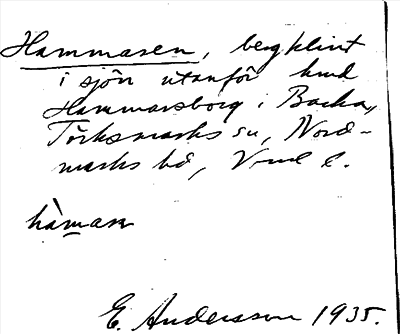 Hammaren, bergklint
i sjön utanför hmd
Hammarsborg i Backa,
Törksmarks sn, Nord-
marks hd, Vrml l.
hàmaṟn
E. Andersson 1935.